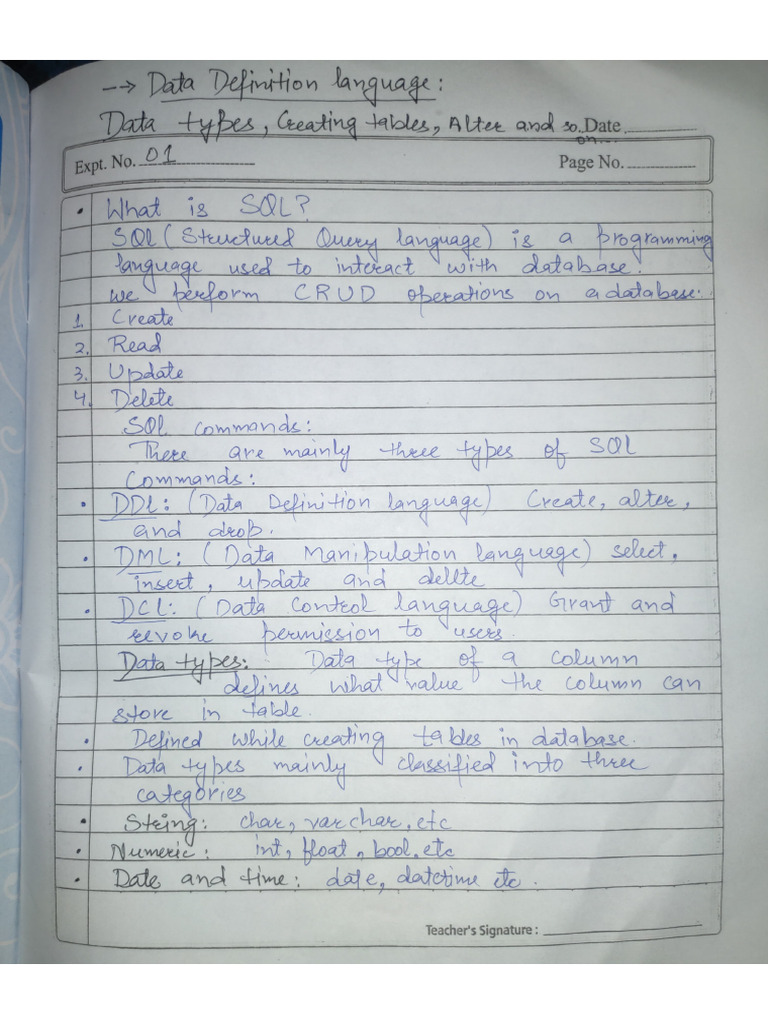 --> Data Definition language:
Data types, Creating tables, Alter and so..Date
on...
Expt. No. 01 Page No.
• What is SQL?
SQL (Structured Query language) is a programming
language used to interact with database.
we perform CRUD operations on a database.
1. Create
2. Read
3. Update
4. Delete
SQL commands:
There are mainly three types of SQL
Commands:
• DDL: (Data Definition language) Create, alter,
and drop.
• DML: (Data Manipulation language) select,
insert, update and delete
• DCL: (Data Control language) Grant and
revoke permission to users.
Data types: Data type of a column
defines what value the column can
store in table.
• Defined while creating tables in database.
• Data types mainly classified into three
categories
• String: char, varchar, etc
• Numeric: int, float, bool, etc
• Date and time: date, datetime etc.
Teacher's Signature :